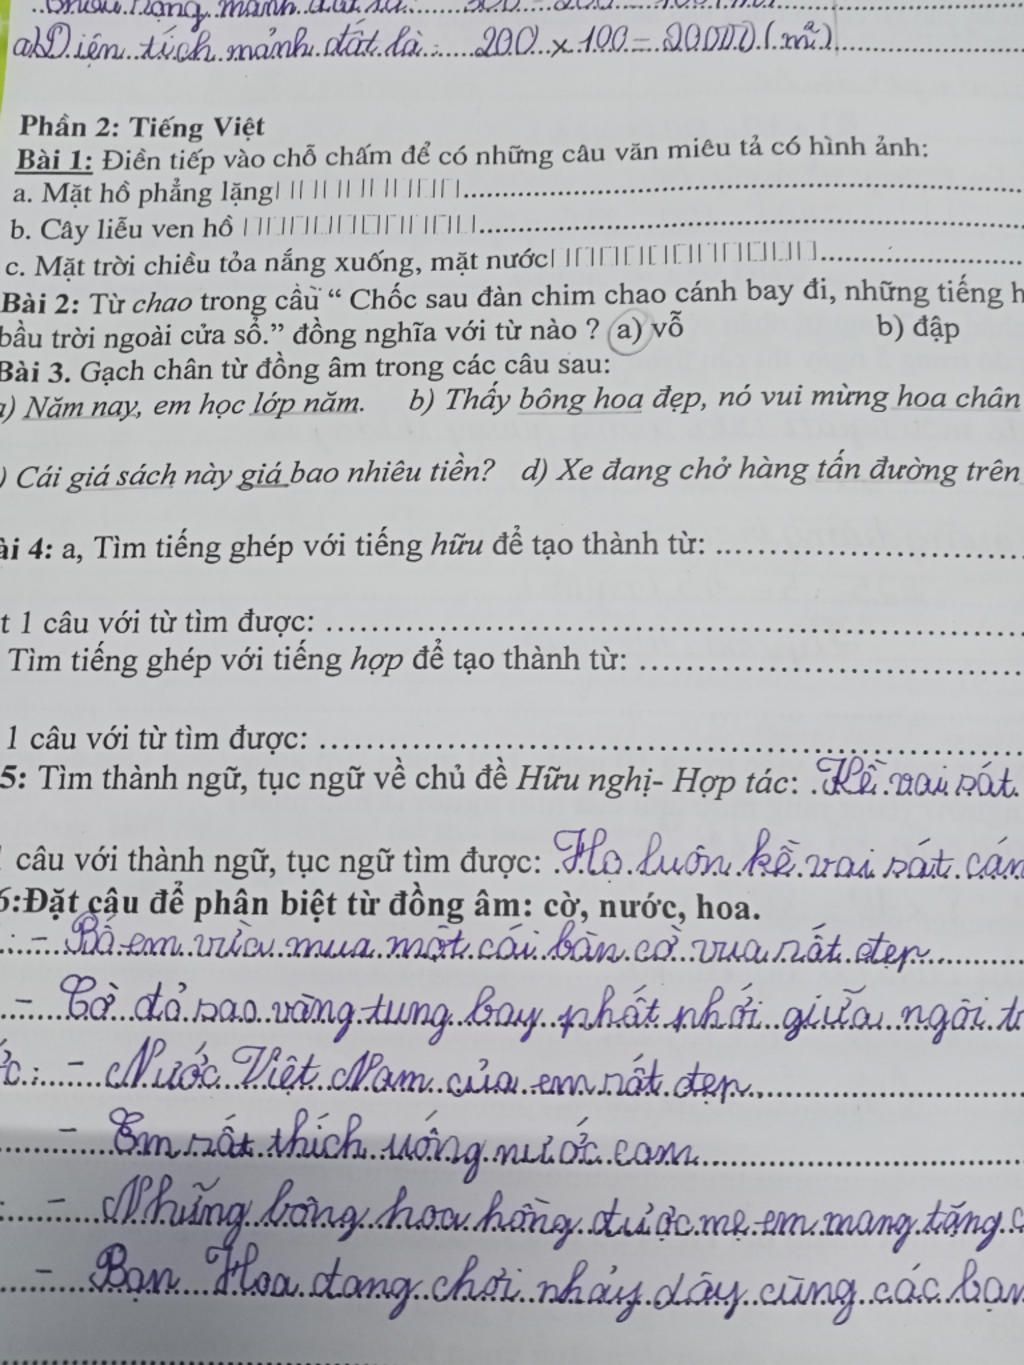 a) Diện tích mảnh đất là : 200 x 100 = 20000 ( m² )
Phần 2: Tiếng Việt
Bài 1: Điền tiếp vào chỗ chấm để có những câu văn miêu tả có hình ảnh:
a. Mặt hồ phẳng lặng
b. Cây liễu ven hồ
c. Mặt trời chiều tỏa nắng xuống, mặt nước
Bài 2: Từ chao trong cầu “ Chốc sau đàn chim chao cánh bay đi, những tiếng h
bầu trời ngoài cửa sổ.” đồng nghĩa với từ nào ? a) vỗ b) đập
Bài 3. Gạch chân từ đồng âm trong các câu sau:
a) Năm nay, em học lớp năm. b) Thấy bông hoa đẹp, nó vui mừng hoa chân
) Cái giá sách này giá bao nhiêu tiền? d) Xe đang chở hàng tấn đường trên
ài 4: a, Tìm tiếng ghép với tiếng hữu để tạo thành từ:
t 1 câu với từ tìm được:
Tìm tiếng ghép với tiếng hợp để tạo thành từ:
1 câu với từ tìm được:
5: Tìm thành ngữ, tục ngữ về chủ đề Hữu nghị- Hợp tác: Kề vai sát
câu với thành ngữ, tục ngữ tìm được: Họ luôn kề vai sát cán
6:Đặt câu để phân biệt từ đồng âm: cờ, nước, hoa.
- Bố em vừa mua một cái bàn cờ vua rất đẹp
- Cờ đỏ sao vàng tung bay phất phới giữa ngôi tr
- Nước Việt Nam của em rất đẹp
- Em rất thích uống nước cam
- Những bông hoa hồng được mẹ em mang tặng c
- Bạn Hoa đang chơi nhảy dây cùng các bạn